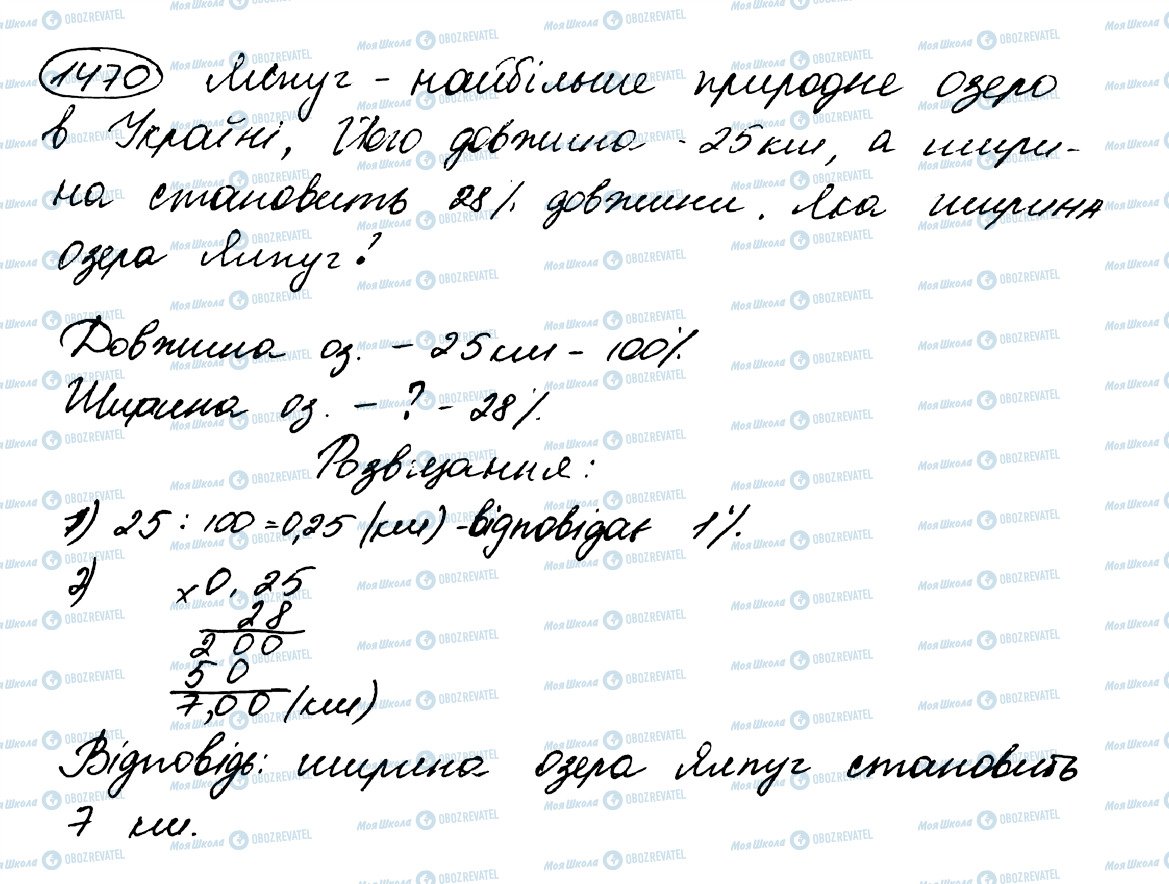 1470 Ялпуг - найбільше природне озеро
в Україні, Його довжина - 25 км, а шири-
на становить 28% довжини. Яка ширина
озера Ялпуг?
Довжина оз. - 25 км - 100%.
Ширина оз. - ? - 28%.
Розв'язання:
1) 25 : 100 = 0,25 (км) - відповідає 1%.
2) × 0,25
28
200
50
7,00 (км)
Відповідь: ширина озера Ялпуг становить
7 км.